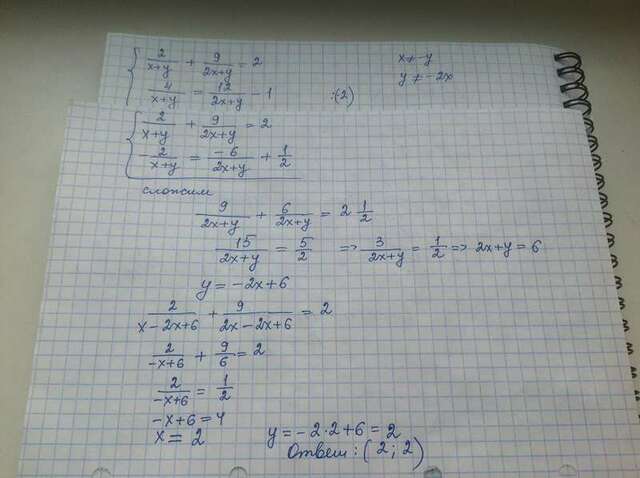 2/(x+y) + 9/(2x+y) = 2    x ≠ -y
4/(x+y) = 12/(2x+y) - 1    :(-2)    y ≠ -2x
2/(x+y) + 9/(2x+y) = 2
-2/(x+y) = -6/(2x+y) + 1/2
сложим
9/(2x+y) + 6/(2x+y) = 2 1/2
15/(2x+y) = 5/2 => 3/(2x+y) = 1/2 => 2x+y = 6
y = -2x+6
2/(x-2x+6) + 9/(2x-2x+6) = 2
2/(-x+6) + 9/6 = 2
2/(-x+6) = 1/2
-x+6 = 4
x = 2    y = -2·2+6 = 2
Ответ: (2; 2)